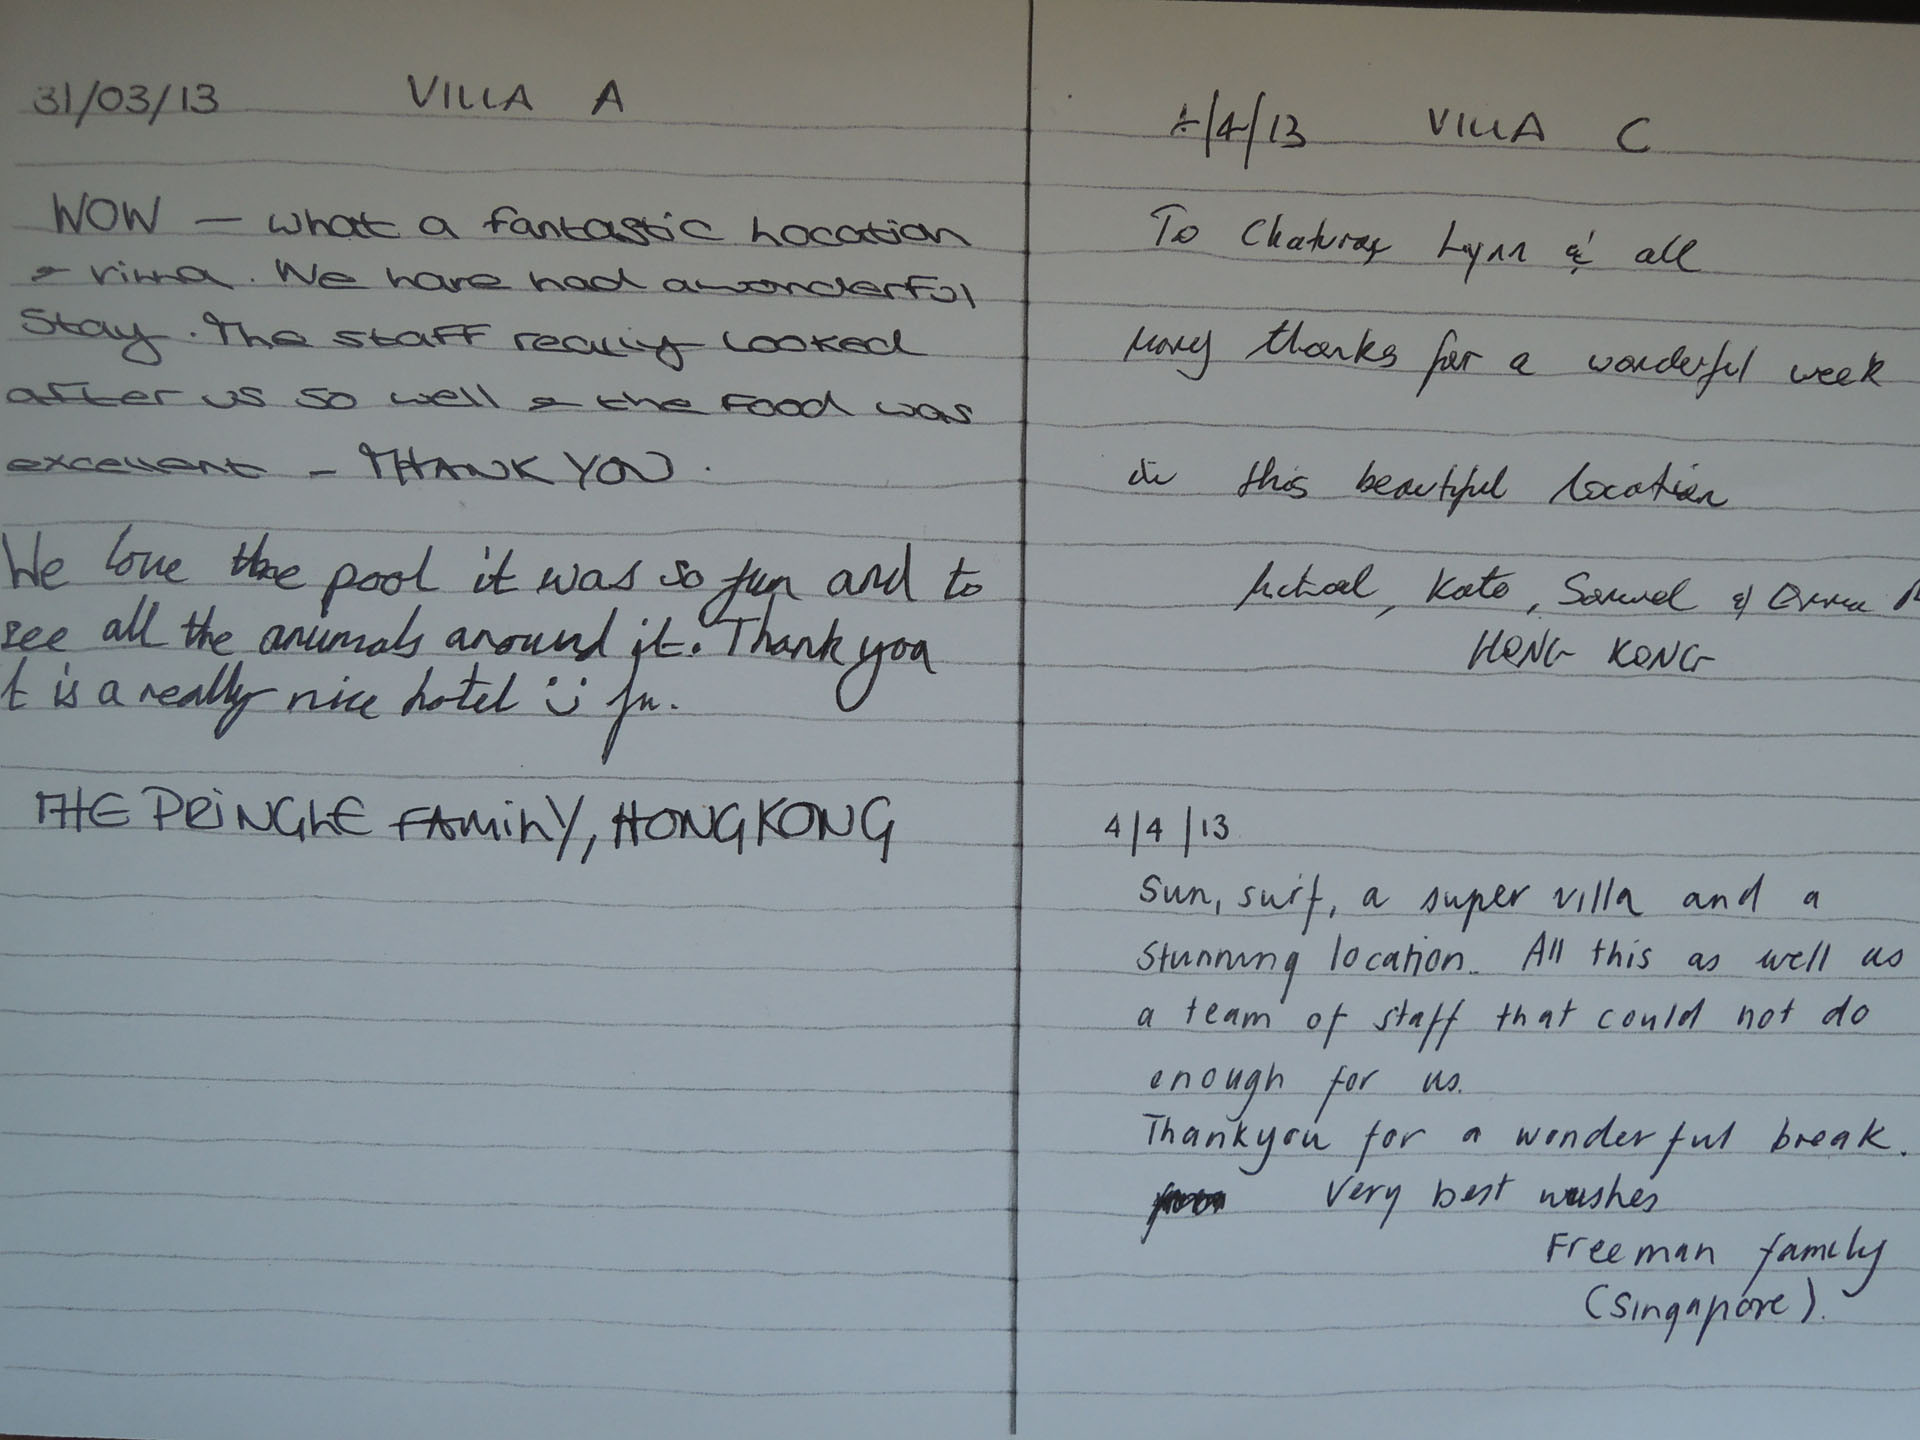 31/03/13 VILLA A
WOW – what a fantastic Location
& villa. We have had a wonderful
Stay. The staff really looked
after us so well & the food was
excellent – THANK YOU.
We love the pool it was so fun and to
see all the animals around it. Thank you
t is a really nice hotel :)
THE PRINGLE FAMILY, HONG KONG
/4/13 VILLA C
To Lynn & all
Many thanks for a wonderful week
in this beautiful location
Michael, Kate, Samuel &
HONG KONG
4/4/13
Sun, surf, a super villa and a
stunning location. All this as well as
a team of staff that could not do
enough for us.
Thankyou for a wonderful break.
Very best wishes
Freeman family
(Singapore).